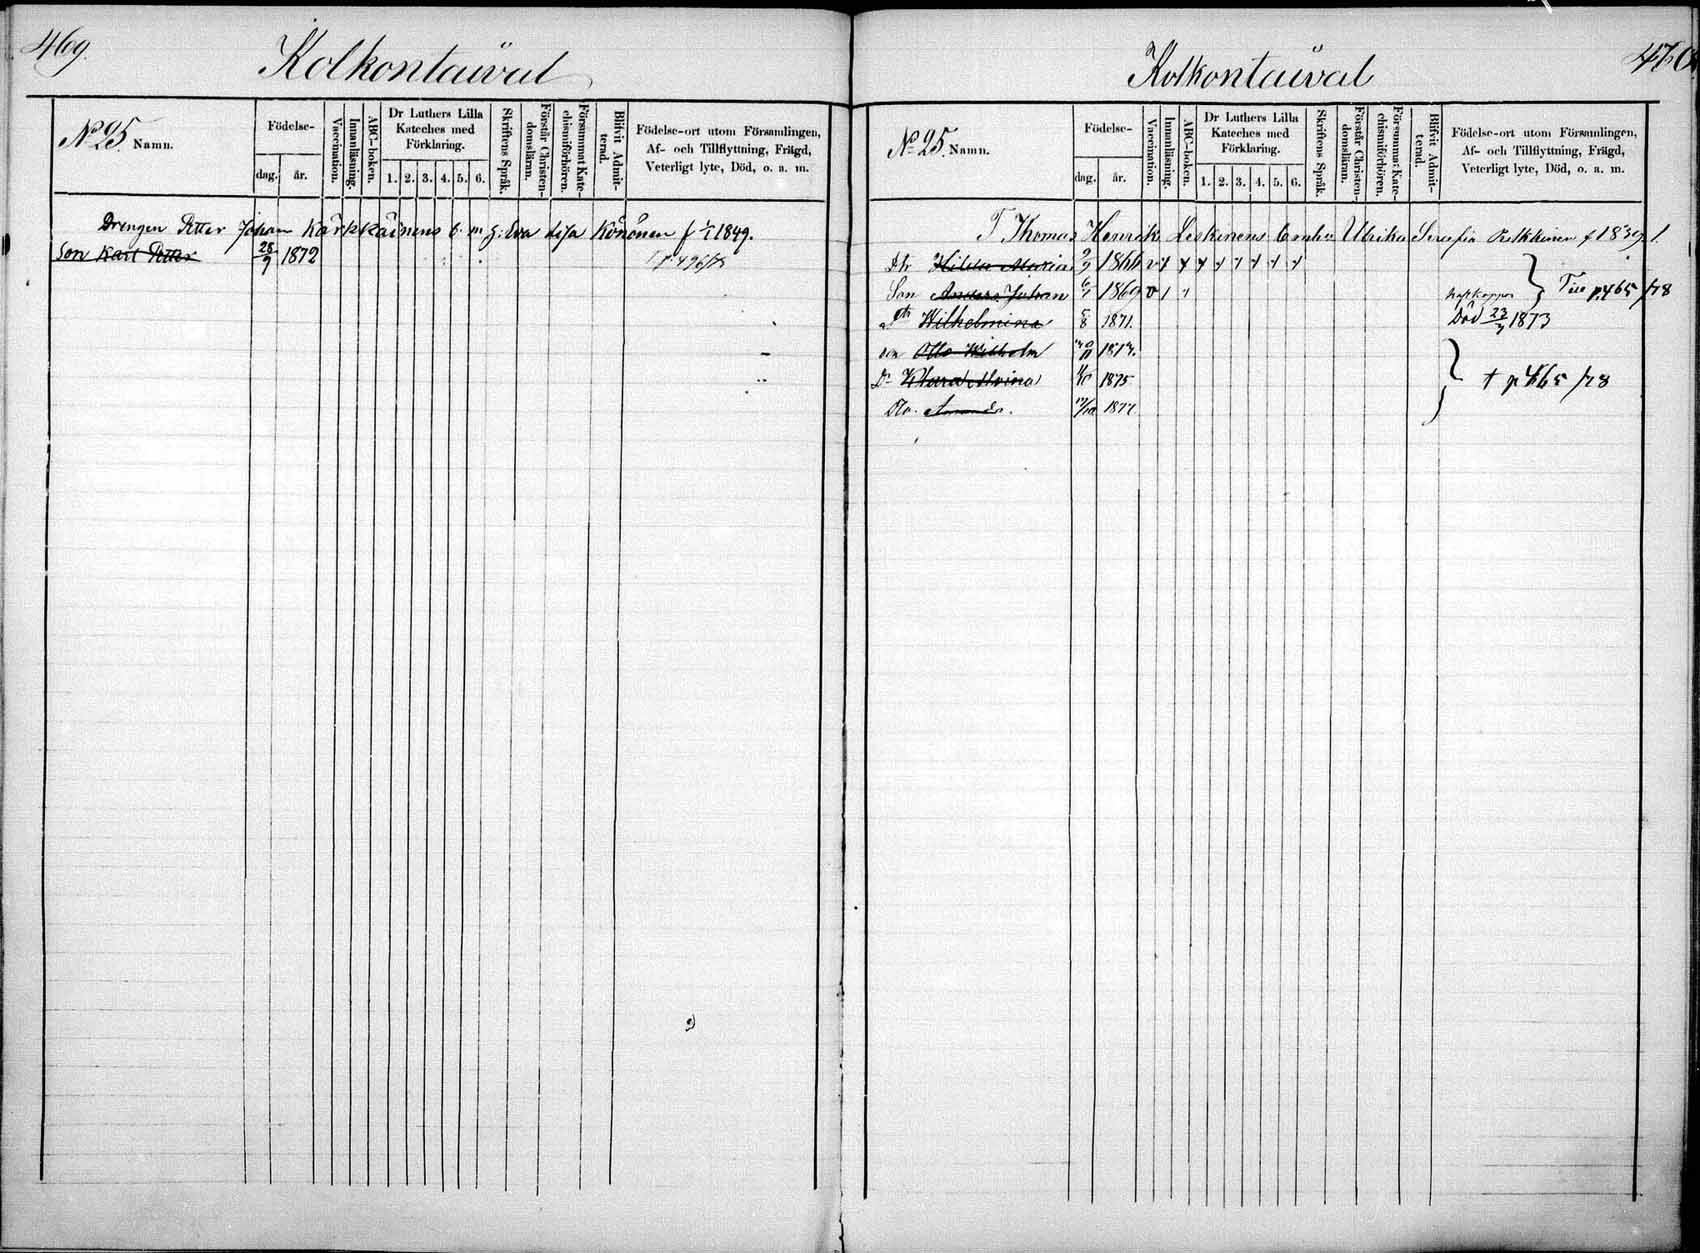 469.
Kolkontaival
No 25. Namn.
Födelse-
dag.
år.
Vaccination.
Innanläsning.
ABC-boken.
Dr Luthers Lilla
Kateches med
Förklaring.
1. 2. 3. 4. 5. 6.
Skriftens Språk.
Förstår Christen-
domsläran.
Försummat Kate-
chismiförhören.
Blifvit Admit-
terad.
Födelse-ort utom Församlingen,
Af- och Tillflyttning, Frägd,
Veterligt lyte, Död, o. a. m.
Drengen Petter Johan Kärkkäinens b. m g: Eva Lisa Könönen f 1/1 1849.
Son Karl Petter 28/9 1872
470
Kolkontaival
No 25. Namn.
Födelse-
dag.
år.
Vaccination.
Innanläsning.
ABC-boken.
Dr Luthers Lilla
Kateches med
Förklaring.
1. 2. 3. 4. 5. 6.
Skriftens Språk.
Förstår Christen-
domsläran.
Försummat Kate-
chismiförhören.
Blifvit Admit-
terad.
Födelse-ort utom Församlingen,
Af- och Tillflyttning, Frägd,
Veterligt lyte, Död, o. a. m.
T Thomas Henrik Leskinens Enka Ulrika Serafia f 1839
Dtr Hilda Maria 1866
Son Anders Johan 1869 Till p. 465 /78
Dtr Wilhelmina 5/8 1871. Död 23/9 1873
son Otto Wilhelm
Dr Klara Alvina 1875 p 465 /78
Dtr. Amanda. 1877.